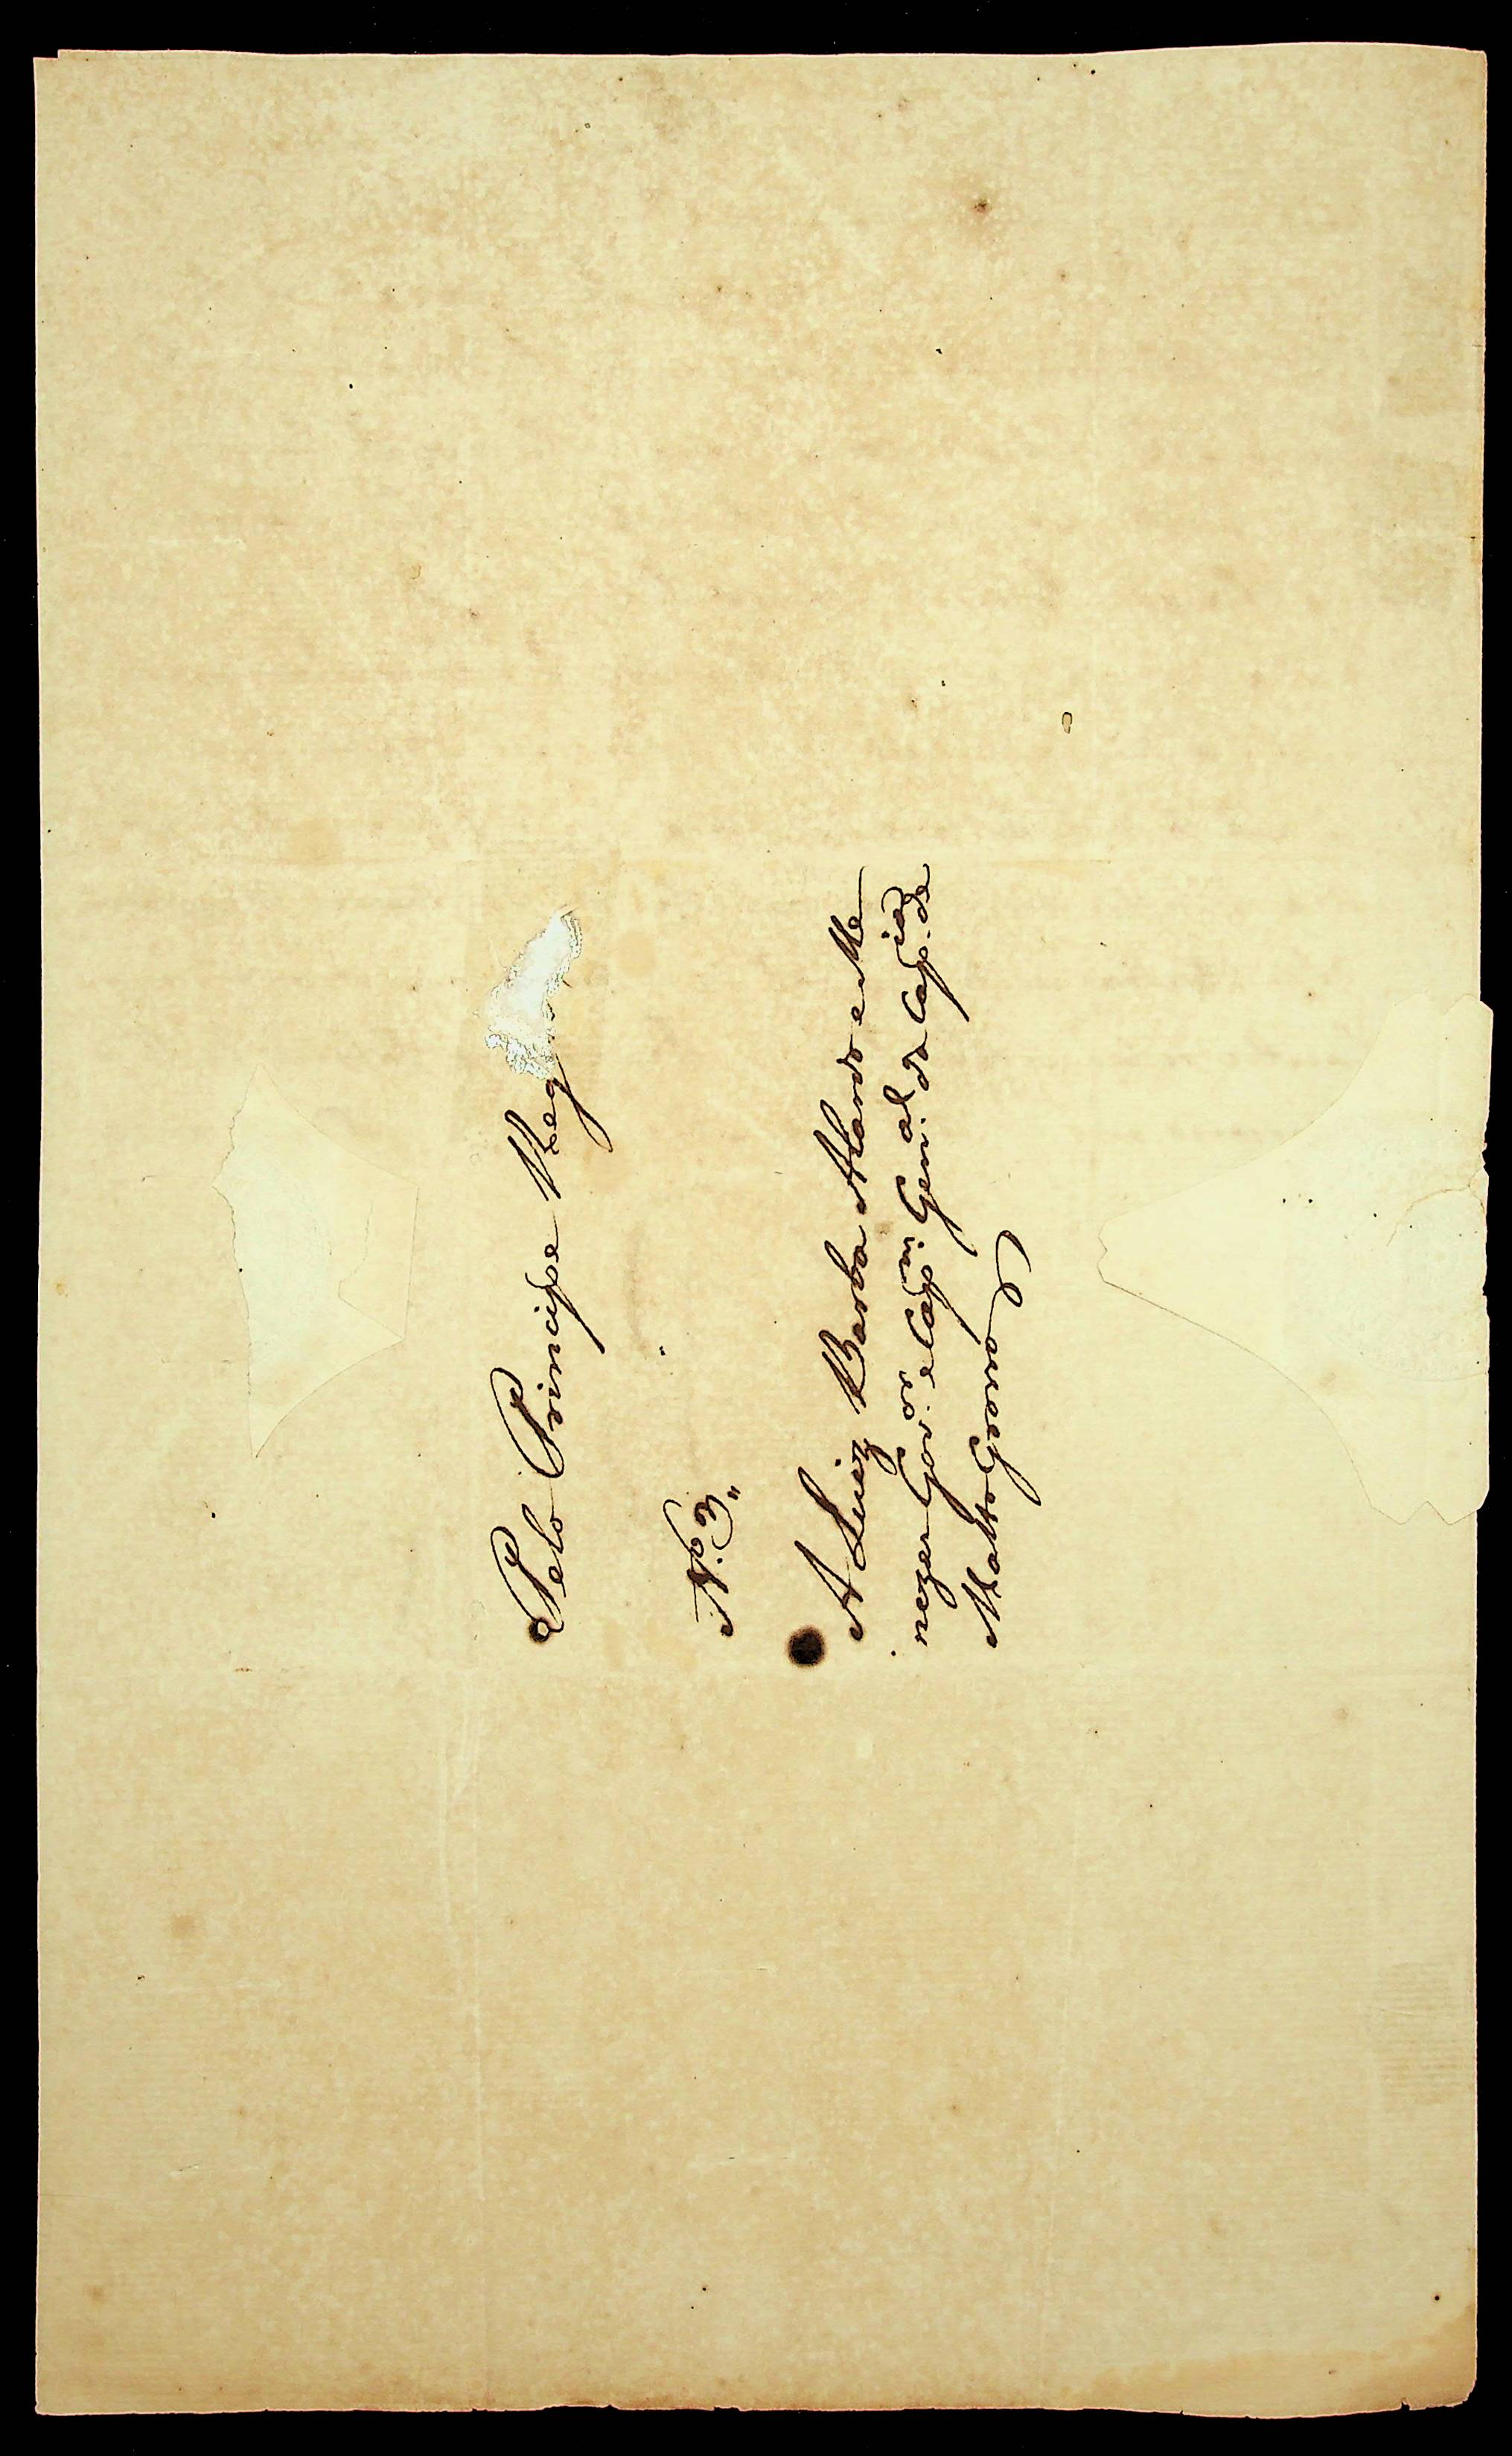 Pelo Principe Reg
N.º 3,,
A Luiz Barba Alardo e Me
nezes Gov.or e Cap.m Gen.al da Cap.ia de
Matto Grosso